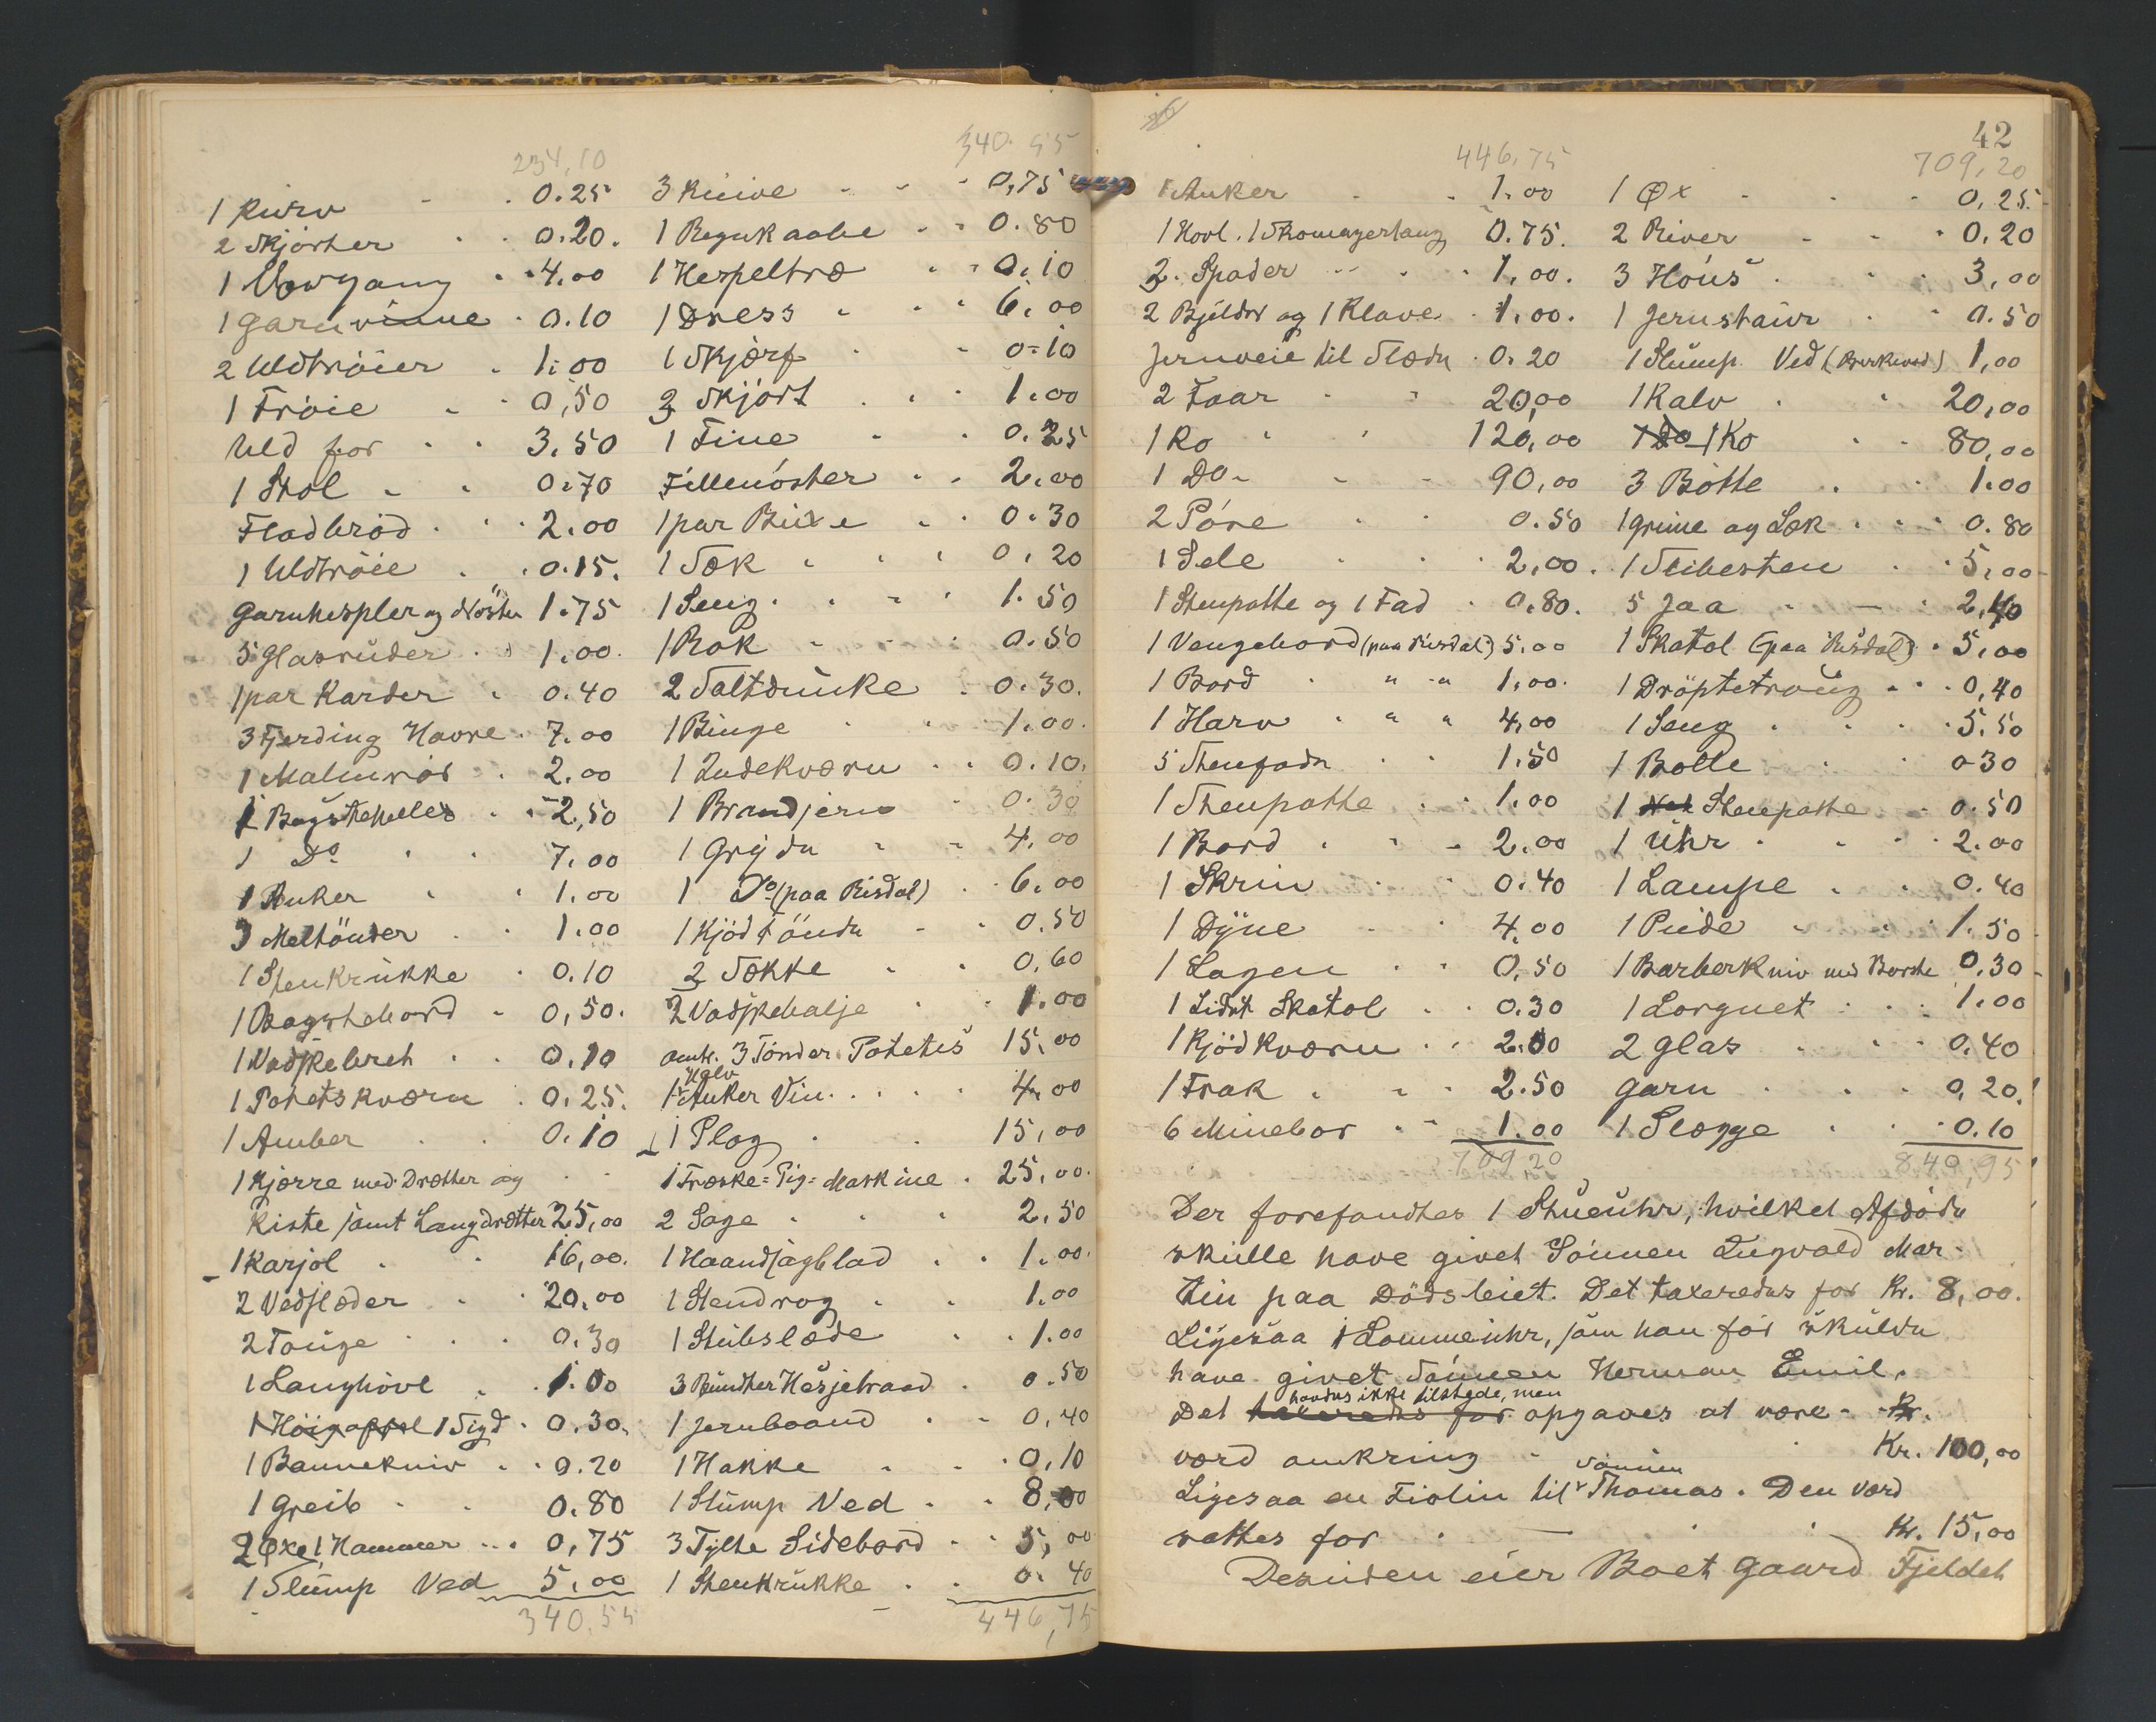 234,10
1 Kurv 0.25
2 Skjörter 0.20.
1 Vevgang 4.00
1 Garnvinne 0.10
2 Uldtröier 1.00
1 Tröie 0,50
Uld for 3.50
1 Stol 0.70
Fladbröd 2.00
1 Uldtröie 0.15.
Garnhespler og Nöster 1.75
5 Glasruder 1.00.
1 par Karder 0.40
3 Fjerding Havre 7.00
1 Malmrör 2.00
1 Bagstehelle 2,50
1 Do 7.00
1 Anker 1.00
3 Meltönder 1.00
1 Stenkrukke 0.10
1 Bagstebord 0,50.
1 Vadskebret 0.10
1 Potetskværn 0.25.
1 Amber 0.10
1 Kjærre med Drætter og
Kiste samt Langdrætter 25,00
1 Karjol 16,00.
2 Vedslæder 20.00
2 Tauge 0.30
1 Langhövl 1.00
1 Sigd 0.30.
1 Bannekniv 0.20
1 Greib 0.80
2 Öxe 1 Hammer 0,75
1 Slump Ved 5.00
340.55
340.55
3 Knive 0,75
1 Regnkaabe 0.80
1 Hespeltræ 0.10
1 Dress 6.00
1 Skjærf 0.10
3 Skjört 1.00
1 Tine 0.25
Fillenöster 2.00
1 par Buxe 0.30
1 Sæk 0.20
1 Seng 1.50
1 Rok 0.50
2 Saltdunke 0.30.
1 Binge 1.00.
1 Ludekværn 0.10.
1 Brandjern 0.30
1 Gryde 4.00
1 Do (paa Risdal) 6.00
1 Kjödtönde 0.50
2 Sække 0.60
2 Vadskebalje 1.00
omtr. 3 Tönder Potetes 15.00
1 Halv Anker Vin 4.00
1 Plog 15,00
1 Træske=Pig=Maskine 25,00.
2 Sage 2.50
1 Haandsagblad 1.00.
1 Stendrog 1.00
1 Stubslæde 1.00
3 Bundter Hesjetraad 0.50
1 Jernbaand 0,40
1 Hakke 0,10
1 Slump Ved 8,00
3 Tylte Sidebord 5,00
1 Stenkrukke 0.40
446,75
42
446,75
1 Anker 1.00
1 Hovl. 1 Skomagertang 0.75.
2. Spader 1,00.
2 Bjelder og 1 Klave 1.00.
Jernveie til Slæde 0.20
2 Faar 20,00
1 Ko 120,00
1 Do 90,00
2 Pöre 0.50
1 Sele 2,00.
1 Stenpotte og 1 Fad 0,80.
1 Vengebord (paa Risdal) 5.00
1 Bord " " 1,00.
1 Harv " " 4,00
5 Stenfade 1.50
1 Stenpotte 1.00
1 Bord 2.00
1 Skrin 0.40
1 Dyne 4.00
1 Lagen 0,50
1 Lidet Skatol 0.30
1 Kjödkværn 2.00
1 Frak 2.50
6 Minebor 1.00
709,20
709,20
1 Öx 0,25.
2 River 0.20
3 Höns 3,00
1 Jernstaur 0.50
1 Slump Ved (Brækved) 1,00
1 Kalv 20,00
1 Do 1 Ko 80,00
3 Bötte 1.00
1 Grime og Læk 0.80
1 Slibesten 5,00
5 Jaa 2,40
1 Skatol (paa Risdal) 5,00
1 Dröptetroug 0,40
1 Seng 5.50
1 Bolle 0 30
1 Stenpotte 0.50
1 Uhr 2.00
1 Lampe 0.40
1 Pude 1.50
1 Barberkniv med Borste 0,30
1 Lorgnet 1.00
2 Glas 0.40
Garn 0,20.
1 Slægge 0.10
840,95
Der forefandtes 1 Stueuhr, hvilket Afdöde
skulle have givet Sönnen Tingvald Mar-
tin paa Dödsleiet. Det taxeredes for Kr. 8,00.
Ligesaa 1 Lommeuhr, som han før skulde
have givet Sönnen Herman Emil.
Det taxeredes for havdes ikke tilstede, men opgaves at være Kr.
værd omkring Kr. 100,00
Ligesaa en Fiolin til Sönnen Thomas. Den værd
sattes for Kr. 15,00
Desuden eier Boet Gaard Fjeldet